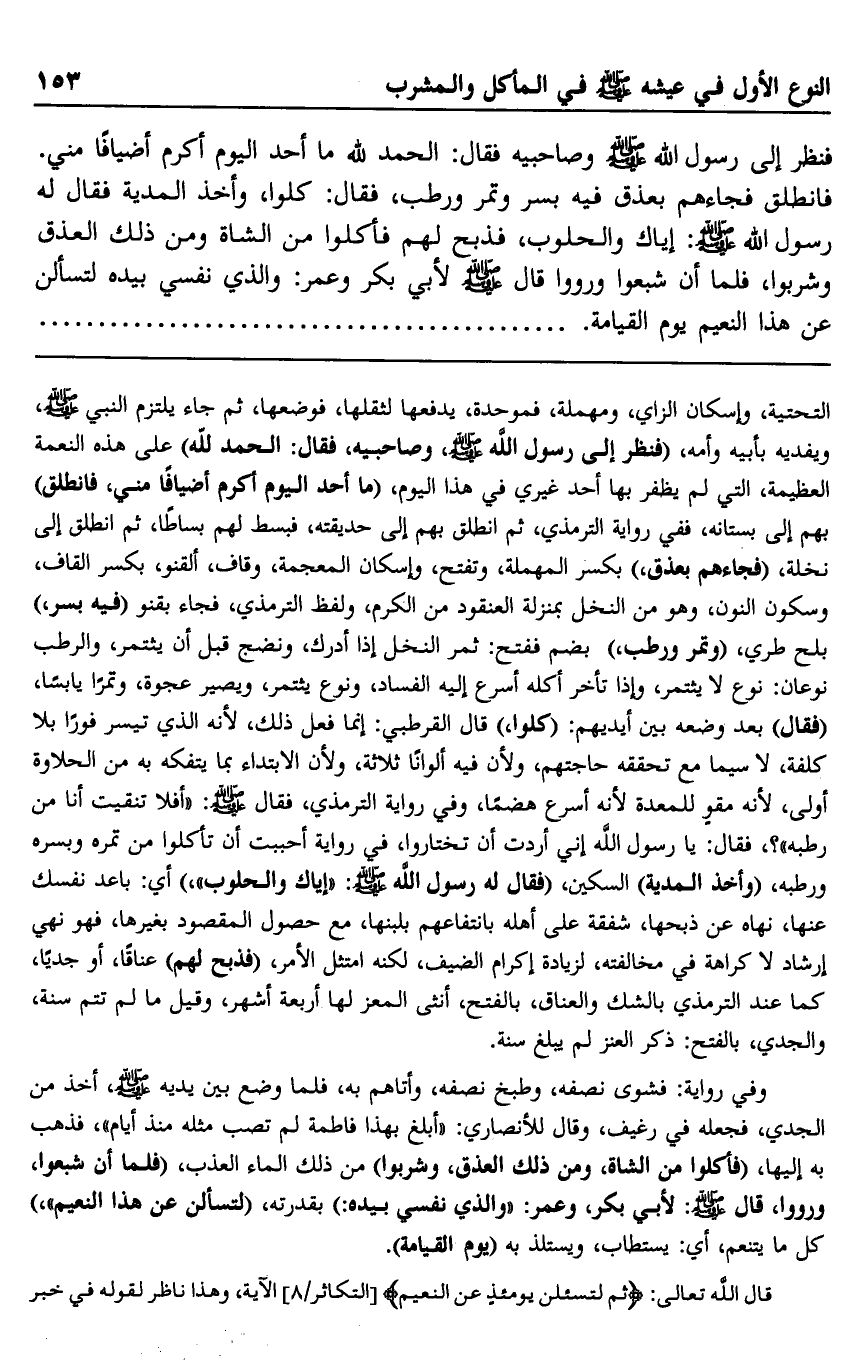 النوع الأول في عيشه ﷺ في المأكل والمشرب ١٥٣
فنظر إلى رسول الله ﷺ وصاحبيه فقال: الحمد لله ما أحد اليوم أكرم أضيافًا مني.
فانطلق فجاءهم بعذق فيه بسر وتمر ورطب، فقال: كلوا، وأخذ المدية فقال له
رسول الله ﷺ: إياك والحلوب، فذبح لهم فأكلوا من الشاة ومن ذلك العذق
وشربوا، فلما أن شبعوا ورووا قال ﷺ لأبي بكر وعمر: والذي نفسي بيده لتسألن
عن هذا النعيم يوم القيامة. .............................................
التحتية، وإسكان الزاي، ومهملة، فموحدة، يدفعها لثقلها، فوضعها، ثم جاء يلتزم النبي ﷺ،
ويفديه بأبيه وأمه، (فنظر إلى رسول اللَّه ﷺ، وصاحبيه، فقال: الحمد للَّه) على هذه النعمة
العظيمة، التي لم يظفر بها أحد غيري في هذا اليوم، (ما أحد اليوم أكرم أضيافًا مني، فانطلق)
بهم إلى بستانه، ففي رواية الترمذي، ثم انطلق بهم إلى حديقته، فبسط لهم بساطًا، ثم انطلق إلى
نخلة، (فجاءهم بعذق،) بكسر المهملة، وتفتح، وإسكان المعجمة، وقاف، ألقنو، بكسر القاف،
وسكون النون، وهو من النخل بمنزلة العنقود من الكرم، ولفظ الترمذي، فجاء بقنو (فيه بسر،)
بلح طري، (وتمر ورطب،) بضم ففتح: ثمر النخل إذا أدرك، ونضج قبل أن يثتمر، والرطب
نوعان: نوع لا يثتمر، وإذا تأخر أكله أسرع إليه الفساد، ونوع يثتمر، ويصير عجوة، وتمرًا يابسًا،
(فقال) بعد وضعه بين أيديهم: (كلوا،) قال القرطبي: إنما فعل ذلك، لأنه الذي تيسر فورًا بلا
كلفة، لا سيما مع تحققه حاجتهم، ولأن فيه ألوانًا ثلاثة، ولأن الابتداء بما يتفكه به من الحلاوة
أولى، لأنه مقوٍ للمعدة لأنه أسرع هضمًا، وفي رواية الترمذي، فقال ﷺ: «أفلا تنقيت أنا من
رطبه»؟، فقال: يا رسول اللَّه إني أردت أن تختاروا، في رواية أحببت أن تأكلوا من تمره وبسره
ورطبه، (وأخذ المدية) السكين، (فقال له رسول اللَّه ﷺ: «إياك والحلوب»،) أي: باعد نفسك
عنها، نهاه عن ذبحها، شفقة على أهله بانتفاعهم بلبنها، مع حصول المقصود بغيرها، فهو نهي
إرشاد لا كراهة في مخالفته، لزيادة إكرام الضيف، لكنه امتثل الأمر، (فذبح لهم) عناقًا، أو جديًا،
كما عند الترمذي بالشك والعناق، بالفتح، أنثى المعز لها أربعة أشهر، وقيل ما لم تتم سنة،
والجدي، بالفتح: ذكر العنز لم يبلغ سنة.
وفي رواية: فشوى نصفه، وطبخ نصفه، وأتاهم به، فلما وضع بين يديه ﷺ، أخذ من
الجدي، فجعله في رغيف، وقال للأنصاري: «أبلغ بهذا فاطمة لم تصب مثله منذ أيام»، فذهب
به إليها، (فأكلوا من الشاة، ومن ذلك العذق، وشربوا) من ذلك الماء العذب، (فلما أن شبعوا،
ورووا، قال ﷺ: لأبي بكر، وعمر: «والذي نفسي بيده:) بقدرته، (لتسألن عن هذا النعيم»،)
كل ما يتنعم، أي: يستطاب، ويستلذ به (يوم القيامة).
قال اللَّه تعالى: ﴿ثم لتسئلن يومئذٍ عن النعيم﴾ [التكاثر/٨] الآية، وهذا ناظر لقوله في خبر